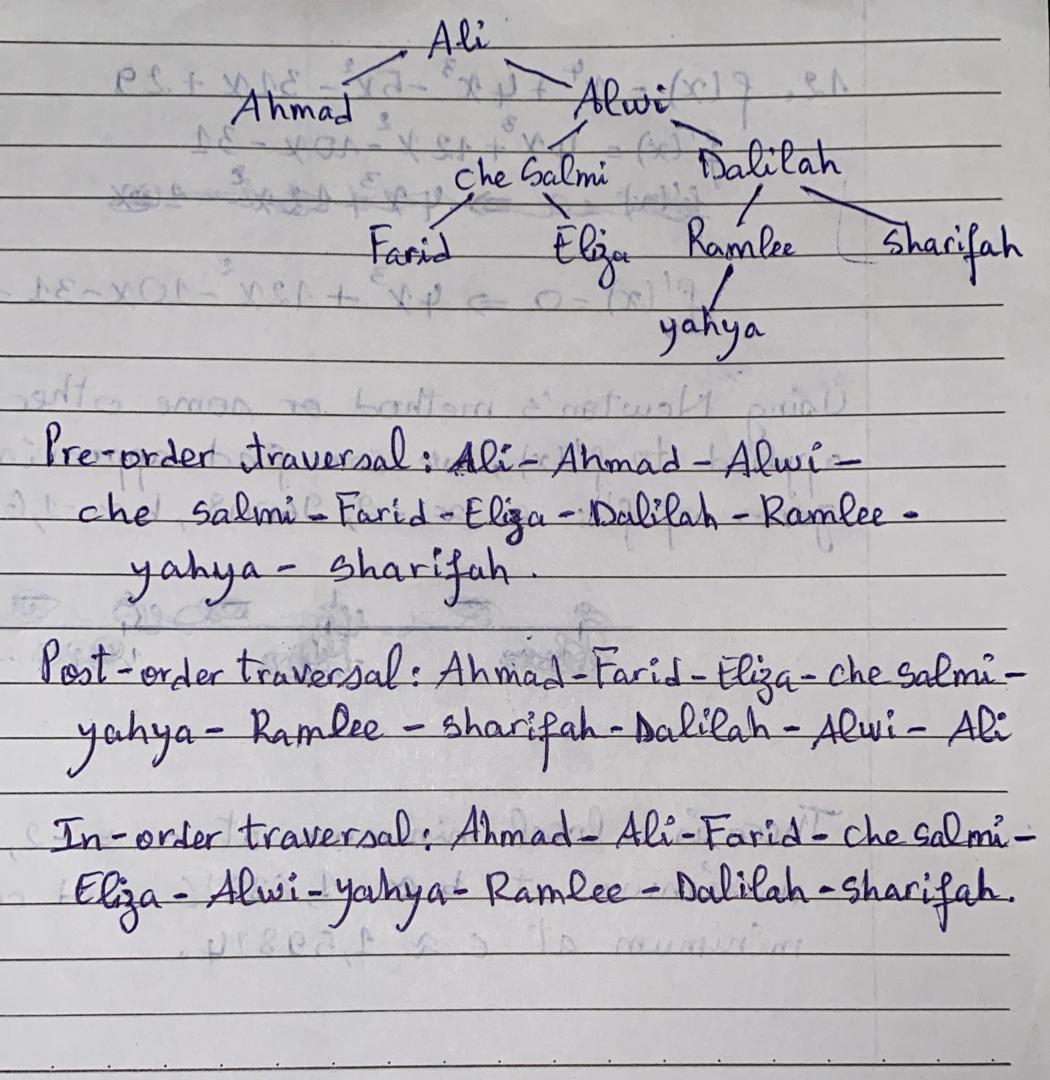 Ali
Ahmad Alwi
che Salmi Dalilah
Farid Eliza Ramlee Sharifah
yahya
Pre-order traversal: Ali - Ahmad - Alwi -
che salmi - Farid - Eliza - Dalilah - Ramlee -
yahya - sharifah.
Post-order traversal: Ahmad - Farid - Eliza - che salmi -
yahya - Ramlee - sharifah - Dalilah - Alwi - Ali
In-order traversal: Ahmad - Ali - Farid - che salmi -
Eliza - Alwi - yahya - Ramlee - Dalilah - sharifah.